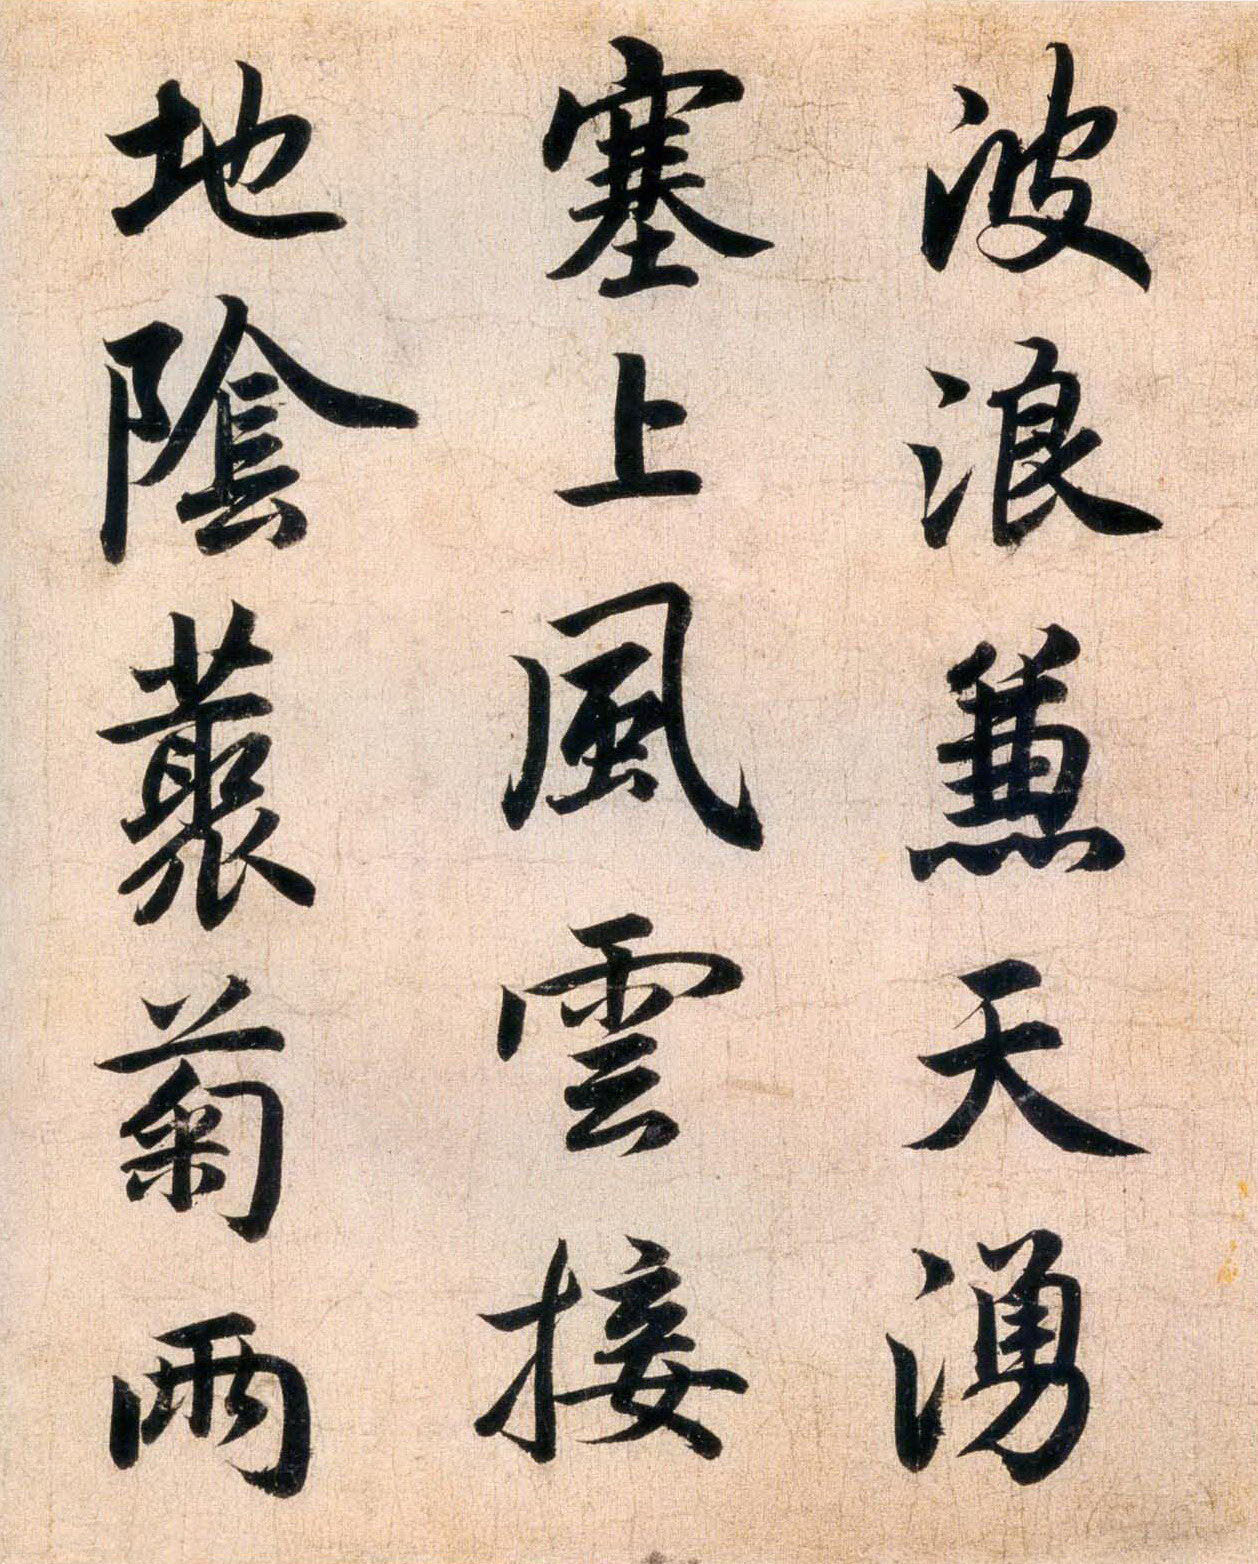 波浪蒹天湧
塞上風雲接
地陰叢菊兩